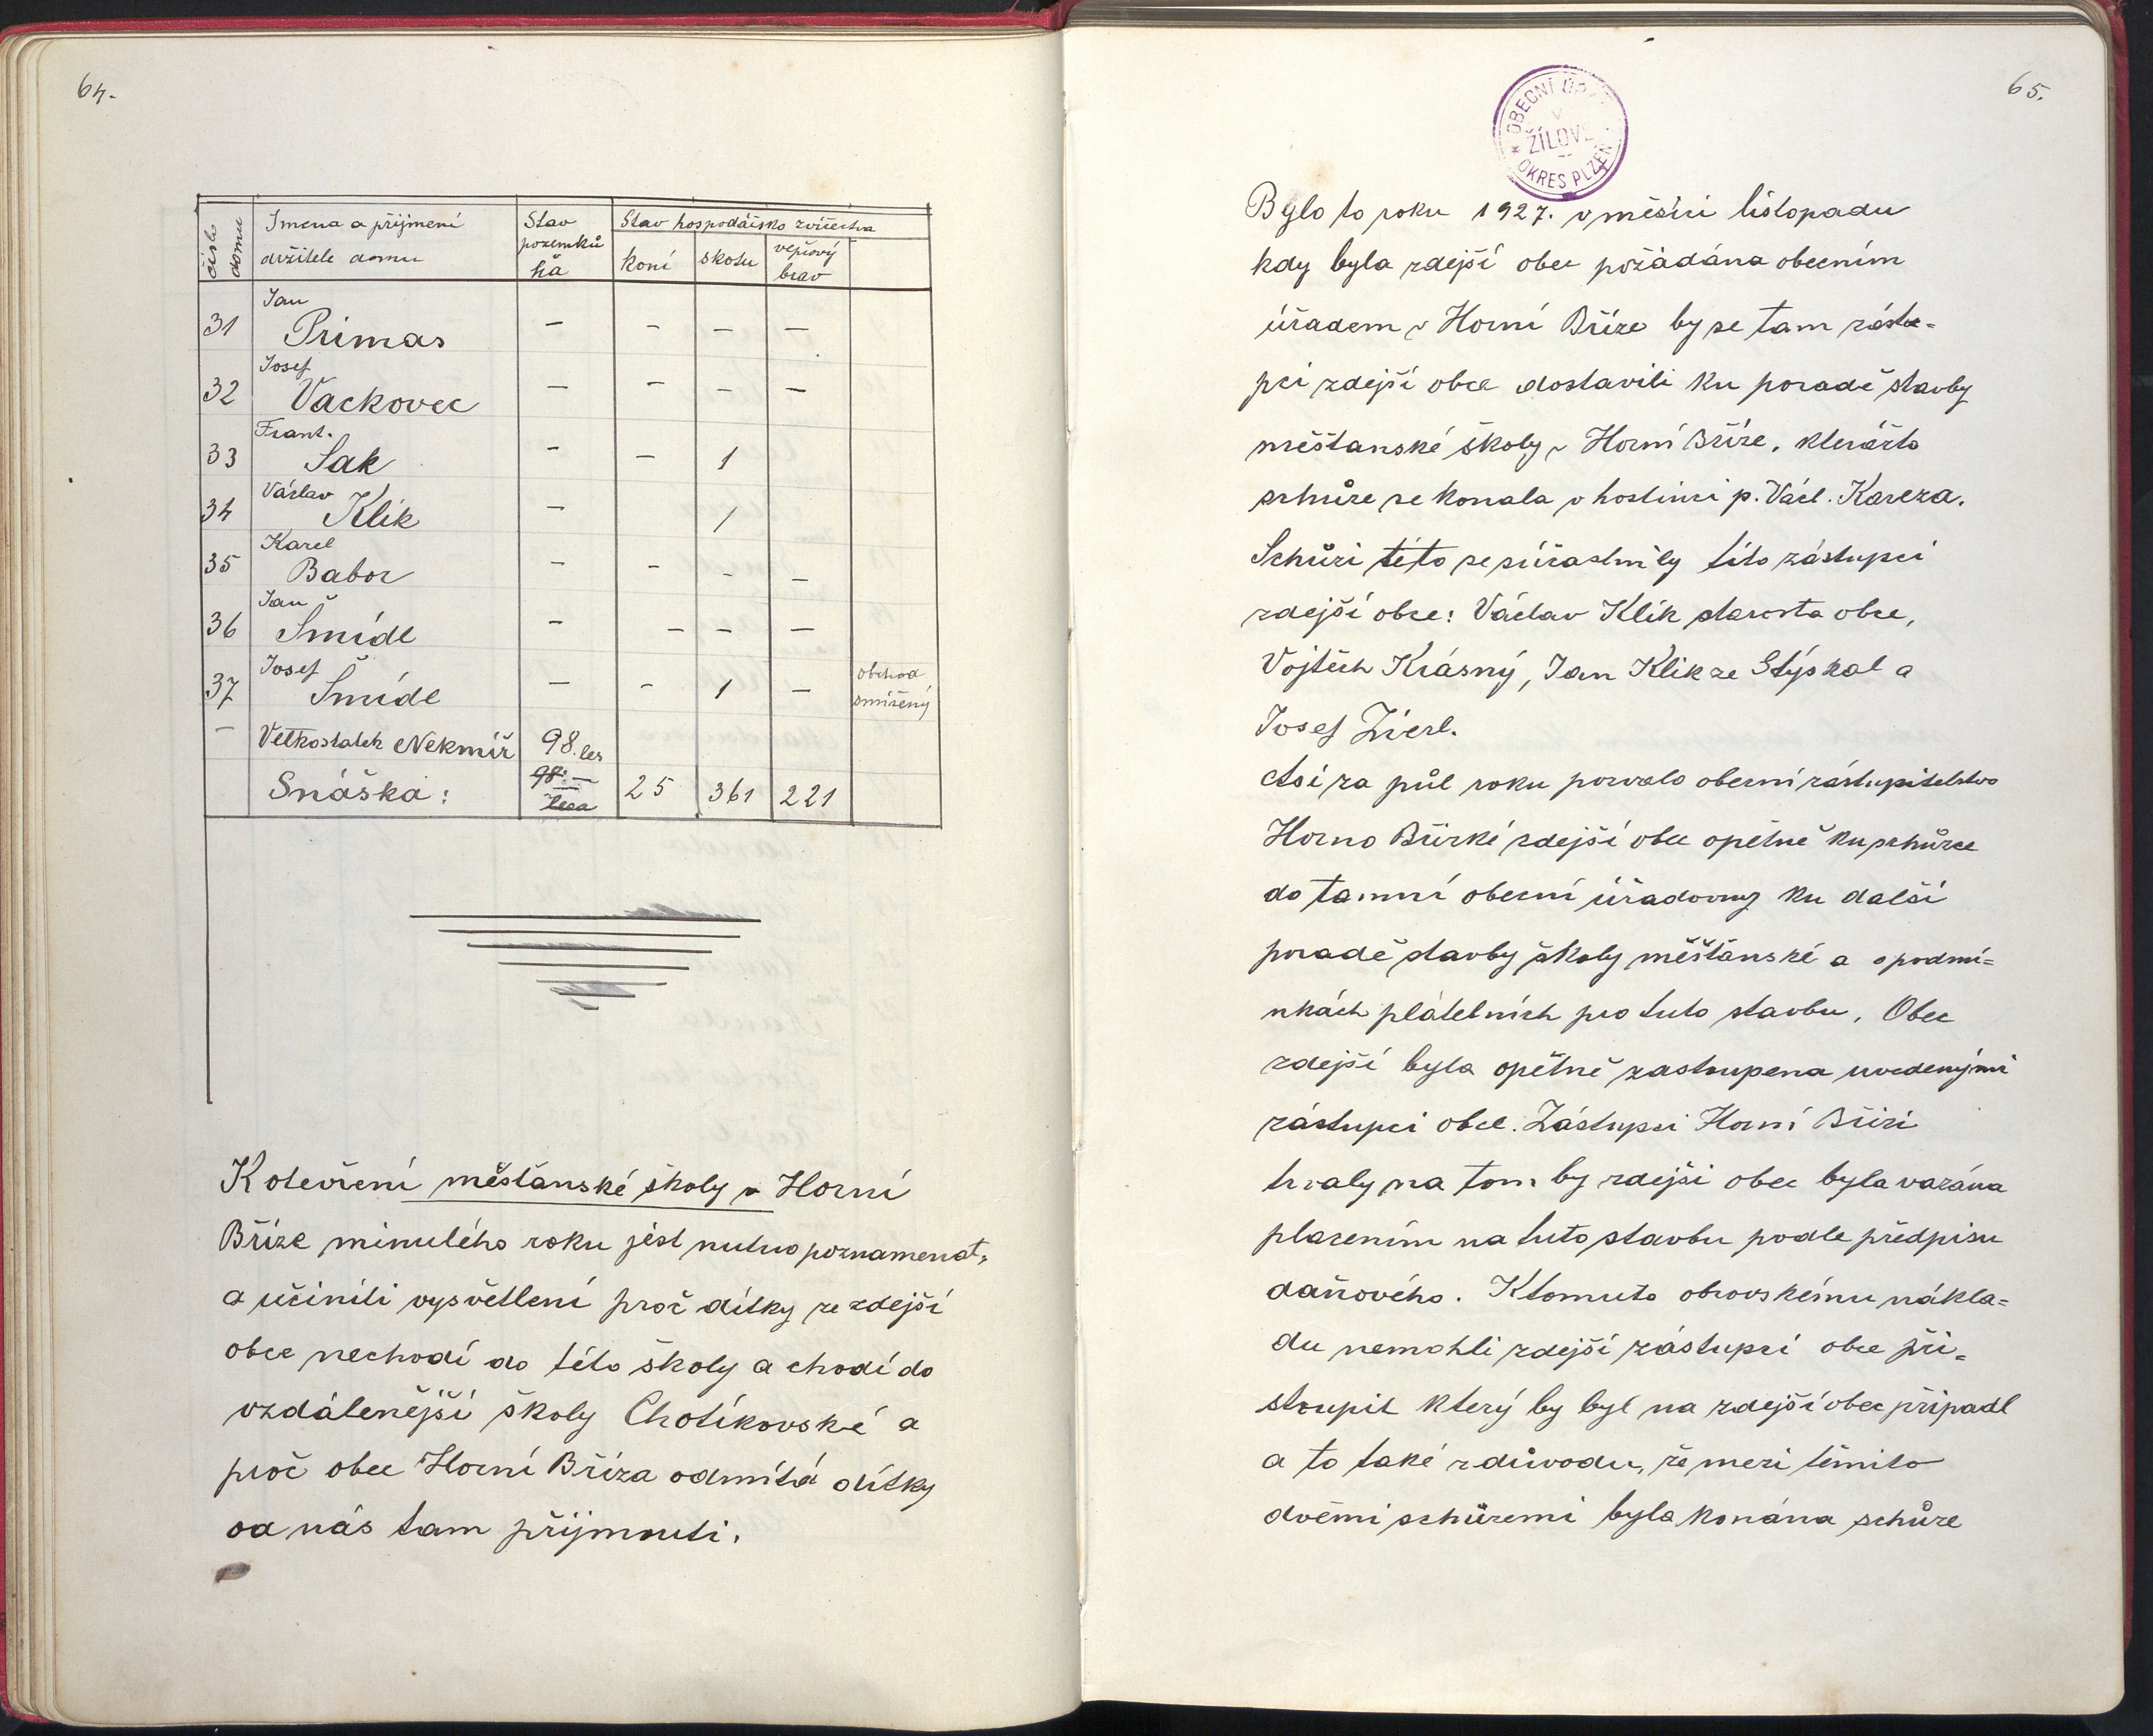 64.
číslo domu | Jména a přijmení držitele domu | Stav pozemků ha | Stav hospodářsko zvířectva
koní | skotu | vepřový brav
31 | Jan Primas | – | – | – | –
32 | Josef Vackovec | – | – | – | –
33 | Frant. Sak | – | – | 1
34 | Václav Klik | – | | 1
35 | Karel Babor | – | – | – | –
36 | Jan Šmídl | – | – | – | –
37 | Josef Šmídl | – | – | 1 | – | obchod smíšený
– | Velkostatek Nekmíř | 98. les
Snáška: | 98.– lesa | 25 | 361 | 221
K otevření měšťanské školy v Horní
Bříze minulého roku jest nutno poznamenat,
a učiniti vysvětlení proč dítky ze zdejší
obce nechodí do této školy a chodí do
vzdálenější školy Chotíkovské a
proč obec Horní Bříza odmítá dítky
od nás tam přijmouti.
65.
OBECNÍ ÚŘAD V ŽÍLOVĚ
* OKRES PLZEŇ
Bylo to roku 1927. v měsíci listopadu
kdy byla zdejší obec požádána obecním
úřadem v Horní Bříze by se tam zástu=
pci zdejší obce dostavili ku poradě stavby
měšťanské školy v Horní Bříze, kterážto
schůze se konala v hostinci p. Václ. Kareza.
Schůzi této se súčastnily títo zástupci
zdejší obce: Václav Klik starosta obce,
Vojtěch Krásný, Jan Klik ze Stýskal a
Josef Zierl.
Asi za půl roku pozvalo obecní zástupitelstvo
Horno Břízké zdejší obec opětně ku schůzce
do tamní obecní úřadovny ku další
poradě stavby školy měšťanské a o podmí=
nkách plátebních pro tuto stavbu. Obec
zdejší byla opětně zastoupena uvedenými
zástupci obce. Zástupci Horní Břízi
trvaly na tom by zdejší obec byla vázána
placením na tuto stavbu podle předpisu
daňového. K tomuto obrovskému nákla=
du nemohli zdejší zástupci obce při=
stoupit který by byl na zdejší obec připadl
a to také z důvodu, že mezi těmito
dvěmi schůzemi byla konána schůze